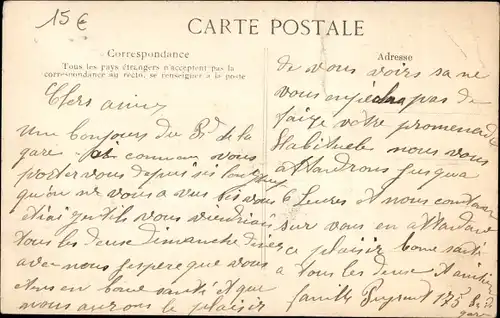 15€
CARTE POSTALE
Correspondance
Tous les pays étrangers n'acceptent pas la
correspondance au recto, se renseigner à la poste
Adresse
Chers amis
Une bonjours du Bd de la
gare comment vous
portez vous depuis si longtemps
qu'on ne vous a vus
étiai qu'ils vous viendriais
tous les deuse dimanche dinés
avec nous j'espere que vous
etes en bone santé et que
nous aurons le plaisir
de vous voirs sa ne
vous enpechera pas de
faire votre promenade
habituele nous vous
attandrons jusqua
6 heures et nous contons
sur vous en attandant
ce plaisir bone santé
a tous les deuse
famille 175 Bd
gare